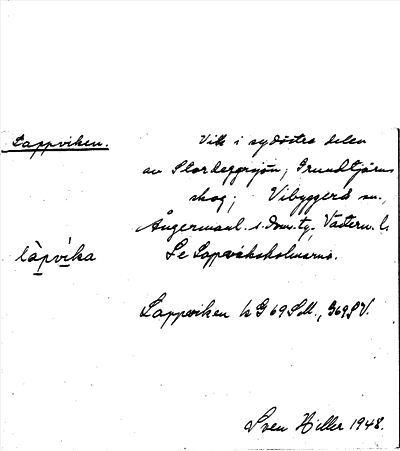 Lappviken.
Vik i sydöstra delen
av Stordegersjön, Grundtjärns
skog; Vibyggerå sn.,
Ångermanl. s. dom. tg. Västern. l.
làpvíka
Se Lappviksholmarna.
Lappviken k G 69 Söll., G69SV.
Sven Hiller 1948.